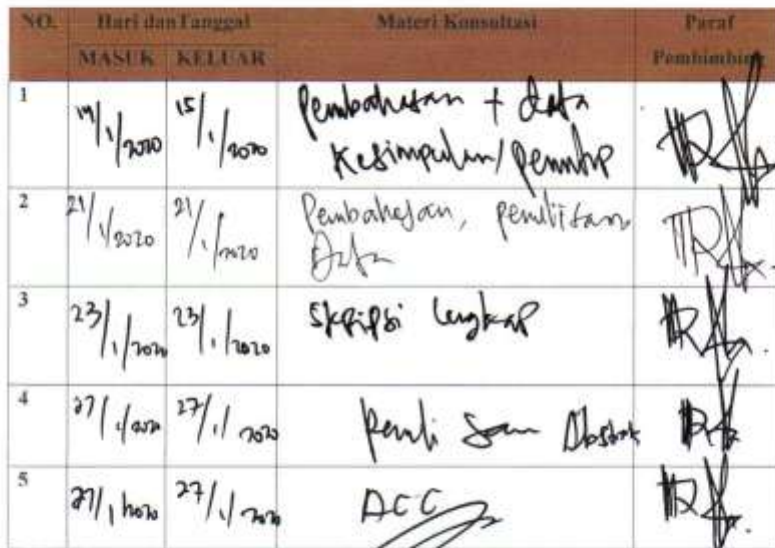 NO. Hari dan Tanggal Materi Konsultasi Paraf
MASUK KELUAR Pembimbing
1 14/1/2020 15/1/2020 Pembahasan + data
Kesimpulan/penutup
2 21/1/2020 21/1/2020 Pembahasan, penulisan
Data
3 23/1/2020 23/1/2020 Skripsi lengkap
4 27/1/2020 27/1/2020 Penulisan Abstrak
5 27/1/2020 27/1/2020 ACC